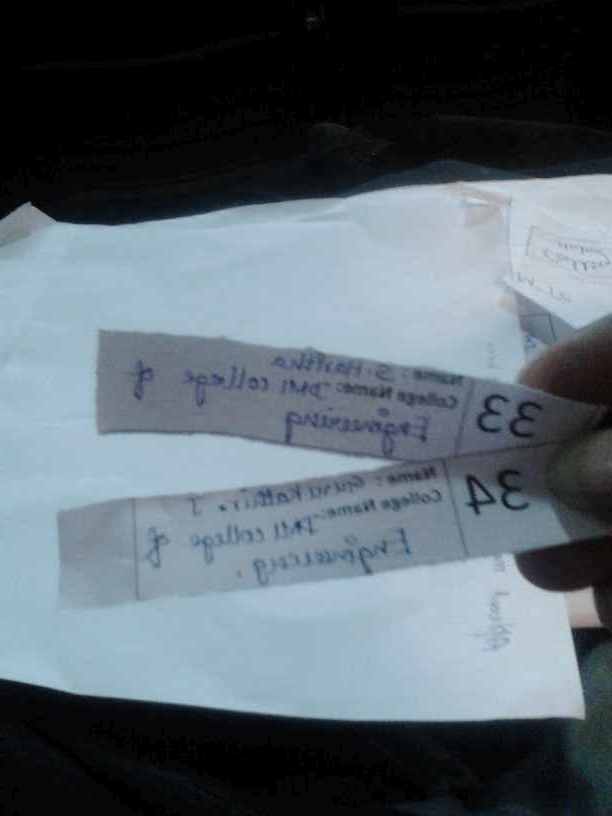 33
Name: S. Haritha
College Name: DMI college of
Engineering
34
Name: Guru Kathir. J
College Name: DMI college of
Engineering.